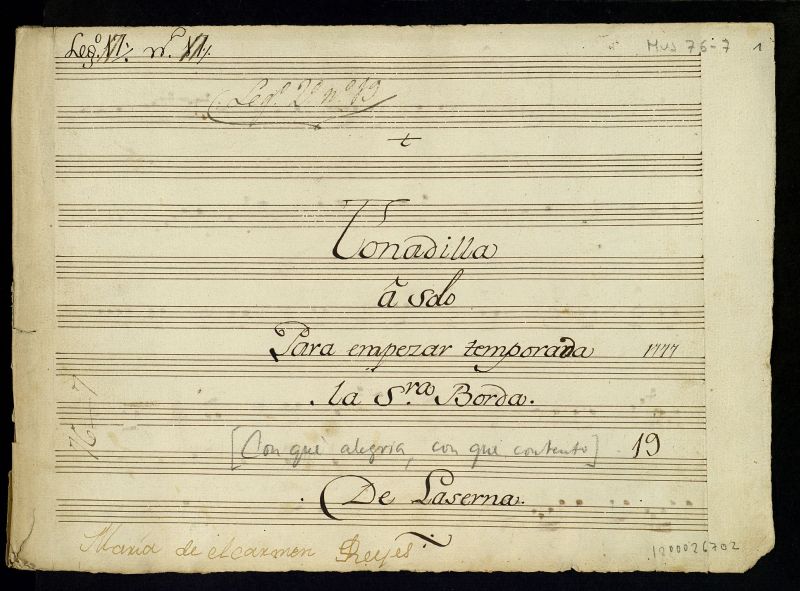 Mus 76-7 1
Leg.º 2.º n.º 19
Tonadilla
â Solo
Para empezar temporada 1777
la S.ra Borda.
76-7
[Con qué alegría, con que contento] 19
De Laserna.
María de Carmen Reyes
1200026702